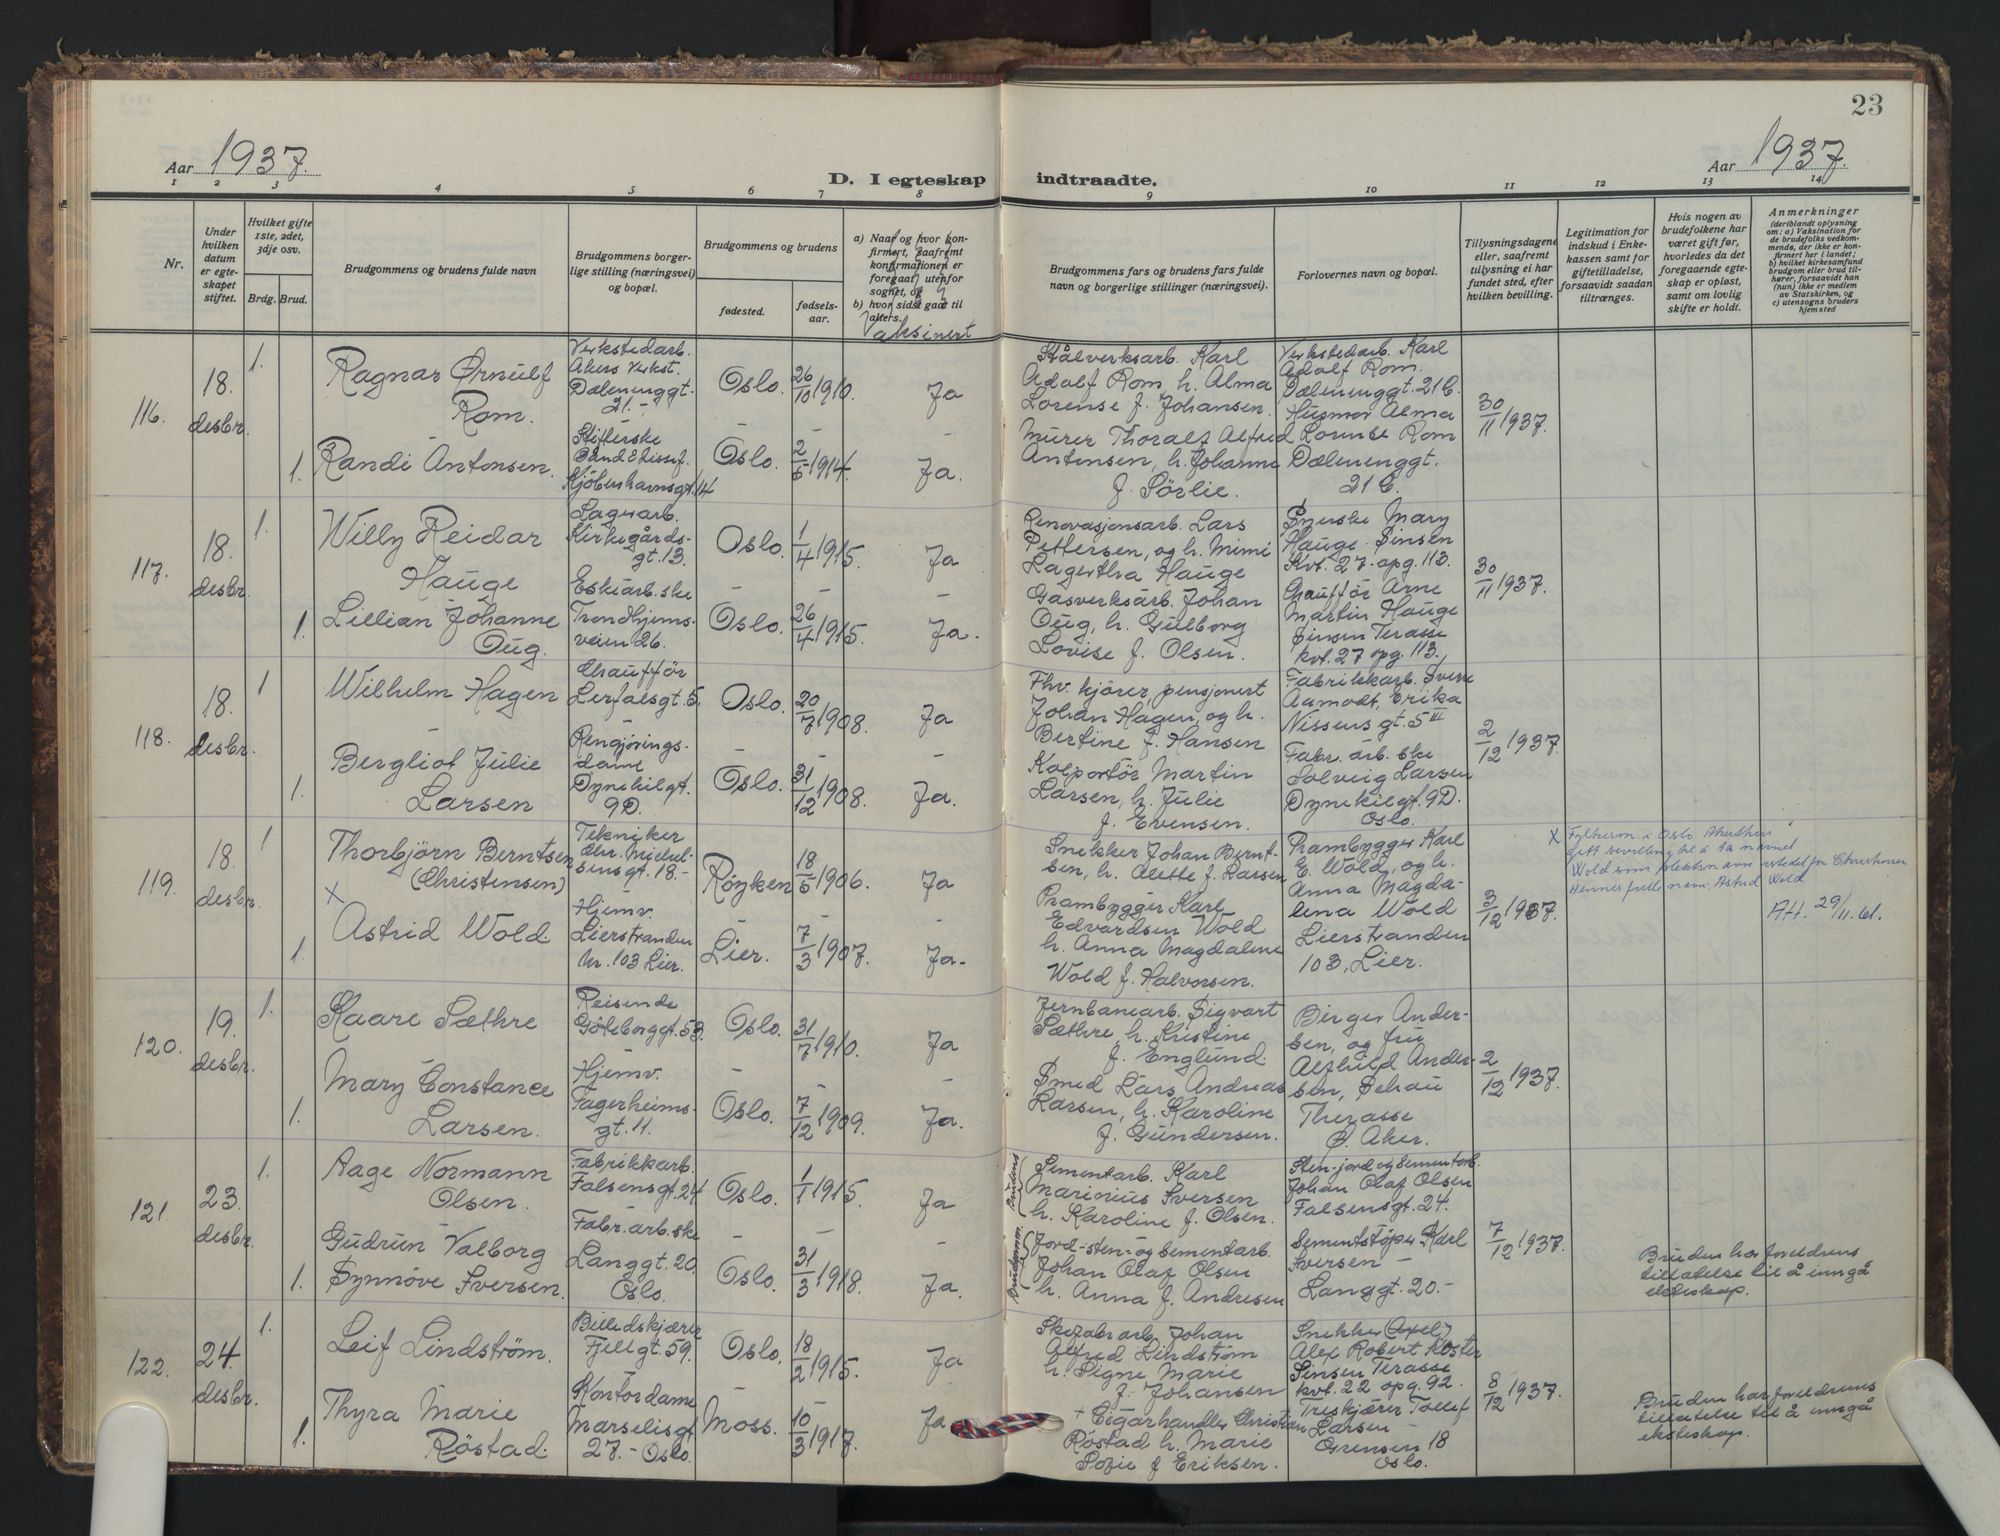 23
Aar 1937.
D. I egteskap indtraadte.
Aar 1937.
1 2 3 4 5 6 7 8 9 10 11 12 13 14
Nr.
Under hvilken datum er egteskapet stiftet.
Hvilket gifte 1ste, 2det, 3dje osv.
Brdg. Brud.
Brudgommens og brudens fulde navn
Brudgommens borgerlige stilling (næringsvei) og bopæl.
Brudgommens og brudens
fødested.
fødselsaar.
a) Naar og hvor konfirmert, saafremt konfirmationen er foregaat utenfor sognet, og
b) hvor sidst gaat til alters.
Vaksinert
Brudgommens fars og brudens fars fulde navn og borgerlige stillinger (næringsvei).
Forlovernes navn og bopæl.
Tillysningsdagene eller, saafremt tillysning ei har fundet sted, efter hvilken bevilling.
Legitimation for indskud i Enkekassen samt for giftetilladelse, forsaavidt saadan tiltrænges.
Hvis nogen av brudefolkene har været gift før, hvorledes da det foregaaende egteskap er opløst, samt om lovlig skifte er holdt.
Anmerkninger
(deriblandt oplysning om: a) Vaksination for de brudefolks vedkommende, der ikke er konfirmert her i landet; b) hvilket kirkesamfund brudgom eller brud tilhører, forsaavidt han (hun) ikke er medlem av Statskirken, og c) utensogns bruders hjemsted
116. 18. desbr.
1. Ragnar Ørnulf
Rom.
Verkstedarb.
Akers Verkst.
Dælenenggt.
21.-
Oslo. 26/10 1910. Ja
Stålverksarb. Karl
Adolf Rom h. Alma
Lorense f. Johansen.
Verkstedarb. Karl
Adolf Rom.
Dælenenggt. 21 C.
30/11 1937.
1. Randi Antonsen.
Kjöbenhavnsgt. 14
Oslo. 2/5 1914. Ja.
Murer Thoralf Alfred
Antonsen, h. Johanne
f. Sörlie.
Husmor Alma
Lorense Rom
Dælenenggt.
21 C.
117. 18. desbr.
1. Willy Reidar
Hauge
Lagerarb.
Kirkegårds-
gt. 13.
Oslo. 1/4 1915. Ja
Renovasjonsarb. Lars
Pettersen, og h. Mimi
Lagertha Hauge
Syerske Mary
Hauge Sinsen
Kvt. 27 opg. 113.
30/11 1937.
1. Lillian Johanne
Oug.
Eskearb.ske
Trondhjems-
veien 26.
Oslo. 26/4 1915. Ja.
Gasverksarb. Johan
Oug, h. Gulborg
Lovise f. Olsen.
Chauffør Arne
Martin Hauge
Sinsen Terasse
kvt. 27 opg. 113.
118. 18. desbr.
1 Wilhelm Hagen
Chauffør
Lerfalsgt. 5.
Oslo. 20/7 1908. Ja
Fhv. kjører, pensjonert
Johan Hagen, og h.
Bertine f. Hansen
Fabrikkarb. Sven
Aamodt, Erika
Nissens gt. 5 III
2/12 1937.
1. Bergliot Julie
Larsen
Rengjörings-
dame
Dynekilgt.
9D.
Oslo. 31/12 1908. Ja.
Kolportör Martin
Larsen, h. Julie
f. Evensen.
Fabr. arb. ske
Solveig Larsen
Dynekilgt. 9D.
Oslo.
119. 18. desbr.
1 Thorbjörn Berntsen
(Christensen)
Tekniker
Chr. Michel-
sensgt. 18.-
Røyken 18/5 1906. Ja
Snekker Johan Bernt-
sen, h. Alette f. Larsen
Prambygger Karl
E. Wold, og h.
Anna Magda-
lena Wold
Lierstranden
103, Lier.
3/12 1937.
X
1. Astrid Wold.
Hjemv.
Lierstranden
Nr. 103 Lier.
Lier. 7/3 1907. Ja.
Prambygger Karl
Edvardsen Wold
h. Anna Magdalene
Wold f. Halvorsen.
X Fylkesm. i Oslo Akershus
gitt bevilling til å ta navnet
Wold som slektsnavn istedetfor Christensen
Hennes fulle navn: Astrid Wold
AH. 29/11.61.
120. 19. desbr.
1. Kaare Sæthre
Reisende
Göteborggt. 53.
Oslo. 31/7 1910. Ja
Jernbanearb. Sigvart
Sæthre, h. Kristine
f. Englund.
Birger Ander-
sen, og fru
Alfhild Ander-
sen, Schau
Therasse
Ø. Aker.
2/12 1937.
1. Mary Constance
Larsen.
Hjemv.
Fagerheims-
gt. 11.
Oslo. 7/12 1909. Ja.
Smed Lars Andreas
Larsen, h. Karoline
f. Gundersen.
121. 23. desbr.
1. Aage Normann
Olsen.
Fabrikkarb.
Falsensgt. 24
Oslo. 1/1 1915. Ja
Brudens
Sementarb. Karl
Marinius Iversen
h. Karoline f. Olsen.
Sten-jord og Sementarb.
Johan Olaf Olsen
Falsensgt. 24.
7/12 1937.
1. Gudrun Valborg
Synnöve Iversen.
Fabr. arb. ske
Langgt. 20.
Oslo.
Oslo. 31/3 1918. Ja.
Brudgomm.
Jord-sten- og Sementarb.
Johan Olaf Olsen
h. Anna f. Andresen
Sementstöper Karl
Iversen -
Langgt. 20.-
Bruden har foreldrens
tillatelse til å inngå
ekteskap.
122. 24. desbr.
1. Leif Lindstrøm.
Billedskjærer
Fjellgt. 59.
Oslo. 18/2 1915. Ja
Skofabr arb. Johan
Alfred Lindstrøm
h. Signe Marie
f. Johansen
Snekker (Axel)
Alex Robert Koster
Sinsen Terasse
kvt. 22 opg. 92.
8/12 1937.
1. Thyra Marie
Röstad.
Kontordame
Marselisgt
27.- Oslo.
Moss. 10/3 1917. Ja
+ Cigarhandler Christian
Röstad h. Marie
Sofie f Eriksen.
Treskjærer Tollef
Larsen -
Grensen 18
Oslo.
Bruden har foreldrens
tillatelse til å inngå
ekteskap.